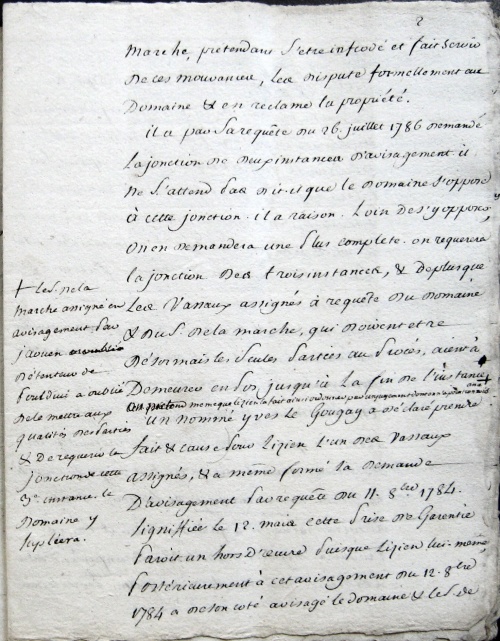 2
marche, pretendant s'etre inféodé et fait servir
de ces mouvances, les dispute formellement au
Domaine & en reclame la propriété.
il a par sa requête du 26. juillet 1786 demandé
la jonction de deux instances d'avisagement. il
ne s'attend pas dit-il que le domaine s'oppose
à cette jonction. il a raison. Loin de s'y opposer,
on en demandera une plus complete. on requerera
la jonction des trois instances, & de plus que
Les Vassaux assignés à requête du Domaine
& du S. de la marche, qui doivent etre
désormais les seules parties au procés, aient à
Demeurer en jusqu'à la fin de l'instance +
on pretend meme que lizien la fait
un nommé yves le Gougay a déclaré prendre
fait & cause pour lizien l'un des Vassaux
assignés, & a même formé sa demande
D'avisagement par requête du 11. 8bre 1784.
signiffiée le 12. mais cette prise de Garentie
paroit un hors d'œuvre puisque lizien lui-même,
postérieurement à cet avisagement du 12. 8bre
1784 a de son coté avisagé le domaine & le S. de
+ le S. de la
marche assigné en
avisagement par
jaouen
détenteur de
poulduï a oublié
de le mettre aux
qualités des parties
& de requerir la
jonction de cette
3e. instance. le
Domaine y
supléera.